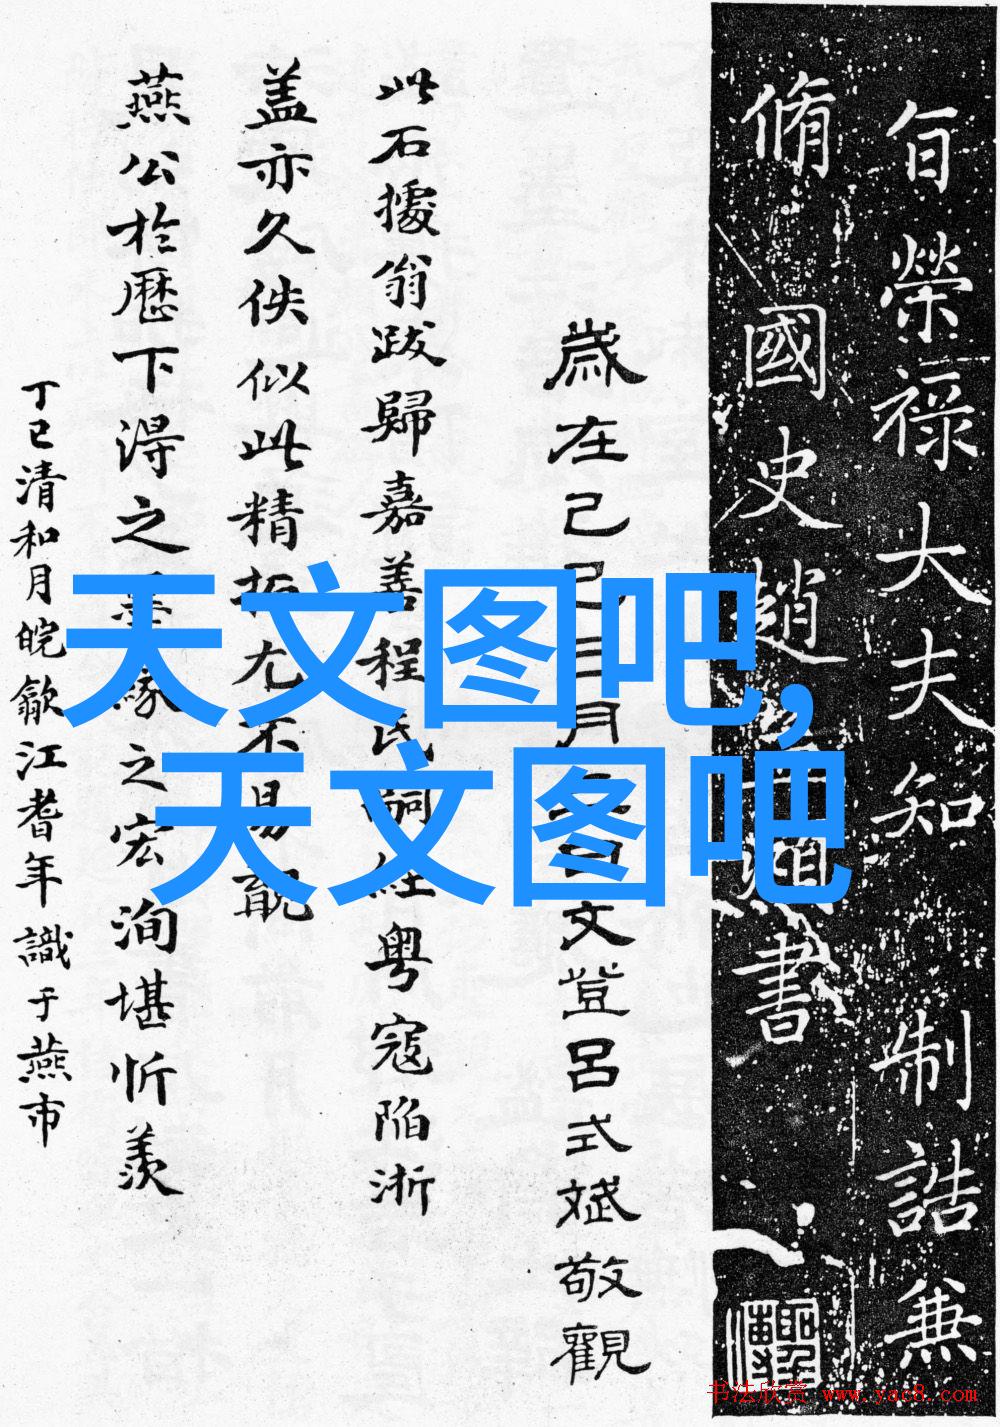 旨榮祿大夫知 制誥兼
脩國史趙頫書
歲在己巳三月日文登呂式斌敬觀
此石據翁跋歸嘉善程氏嗣經粵寇陷浙
盖亦久佚似此精拓尤不易覯
燕公於歷下得之墨緣之宏洵堪忻羨
丁巳清和月皖歙江耆年識于燕市
天文图吧,
天文图吧
书法欣赏 www.yac8.com